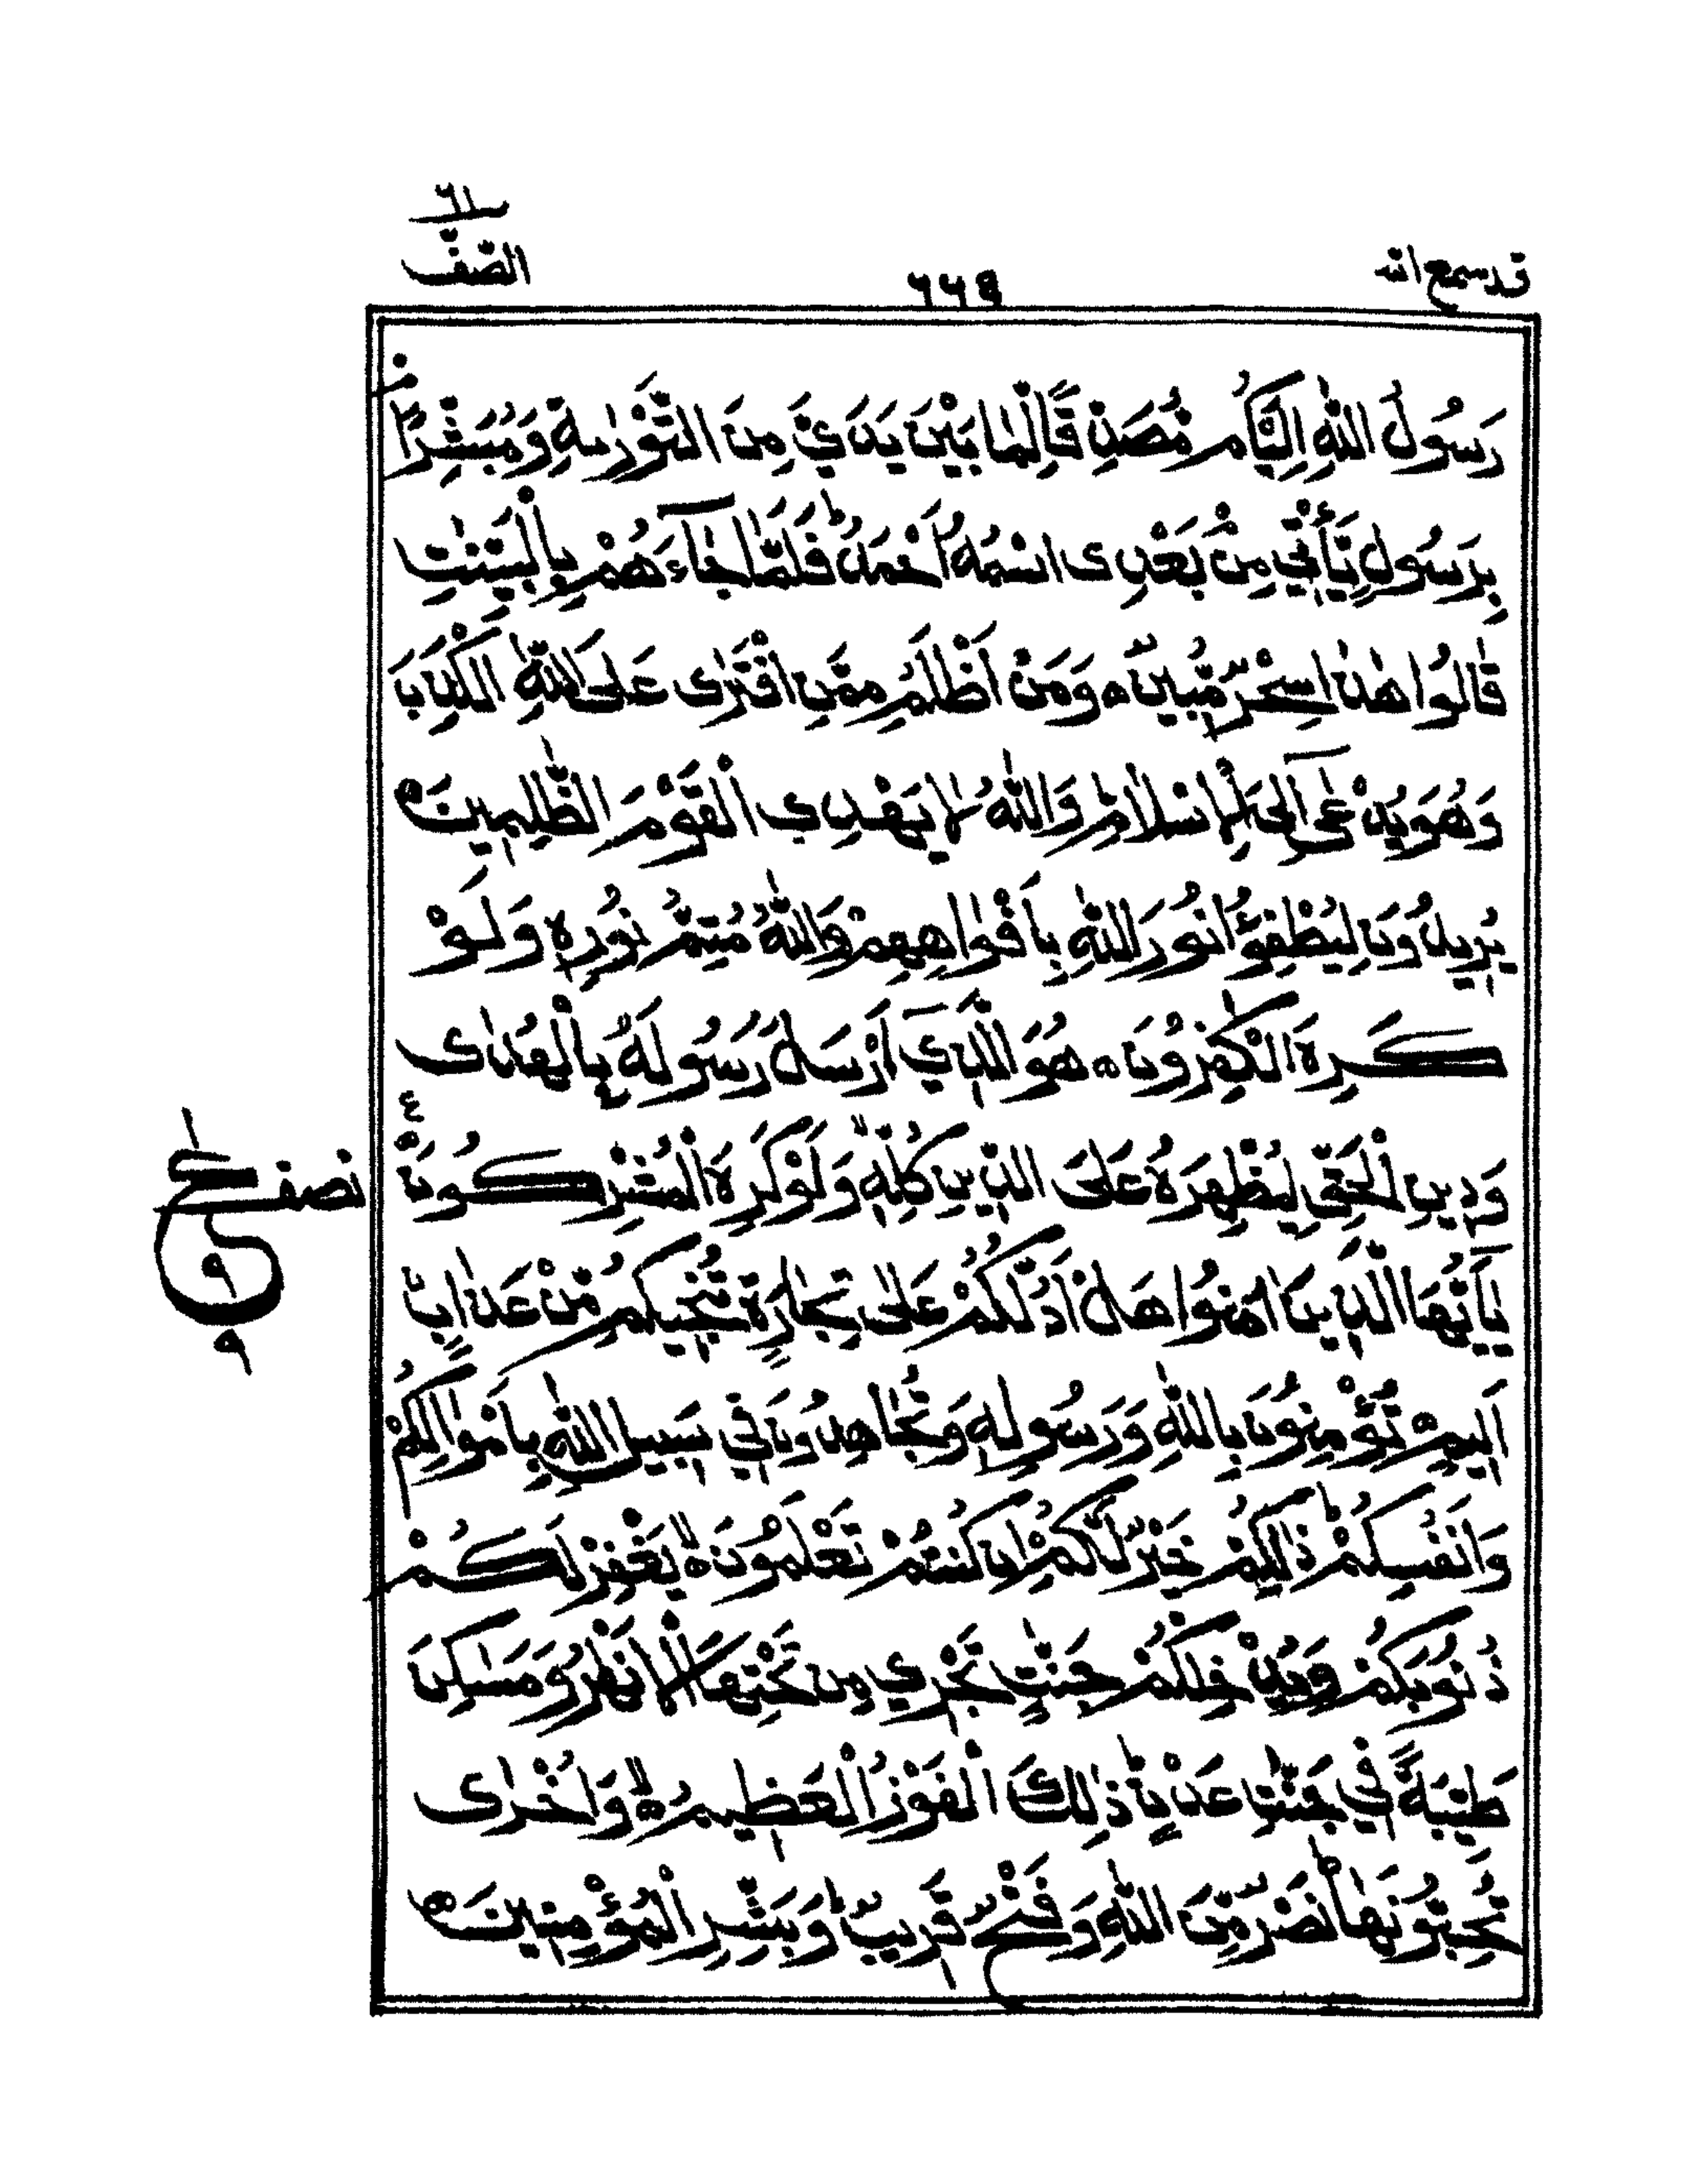 قد سمع الله
٦٦٤
الصّفّ
٦١
رَسُولُ اللّٰهِ اِلَيْكُمْ مُّصَدِّقًا لِّمَا بَيْنَ يَدَيَّ مِنَ التَّوْرٰىةِ وَمُبَشِّرًاۢ
بِرَسُوْلٍ يَّأْتِيْ مِنْۢ بَعْدِى اسْمُهٗٓ اَحْمَدُؕ فَلَمَّا جَآءَهُمْ بِالْبَيِّنٰتِ
قَالُوْا هٰذَا سِحْرٌ مُّبِيْنٌ ۝ وَمَنْ اَظْلَمُ مِمَّنِ افْتَرٰى عَلَى اللّٰهِ الْكَذِبَ
وَهُوَ يُدْعٰٓى اِلَى الْاِسْلَامِؕ وَاللّٰهُ لَا يَهْدِى الْقَوْمَ الظّٰلِمِيْنَ ۝
يُرِيْدُوْنَ لِيُطْفِـُٔوْا نُوْرَ اللّٰهِ بِاَفْوَاهِهِمْ وَاللّٰهُ مُتِمُّ نُوْرِهٖ وَلَوْ
كَرِهَ الْكٰفِرُوْنَ ۝ هُوَ الَّذِيْٓ اَرْسَلَ رَسُوْلَهٗ بِالْهُدٰى
وَدِيْنِ الْحَقِّ لِيُظْهِرَهٗ عَلَى الدِّيْنِ كُلِّهٖۙ وَلَوْ كَرِهَ الْمُشْرِكُوْنَ ۝
يٰٓاَيُّهَا الَّذِيْنَ اٰمَنُوْا هَلْ اَدُلُّكُمْ عَلٰى تِجَارَةٍ تُنْجِيْكُمْ مِّنْ عَذَابٍ
اَلِيْمٍ ۝ تُؤْمِنُوْنَ بِاللّٰهِ وَرَسُوْلِهٖ وَتُجَاهِدُوْنَ فِيْ سَبِيْلِ اللّٰهِ بِاَمْوَالِكُمْ
وَاَنْفُسِكُمْؕ ذٰلِكُمْ خَيْرٌ لَّكُمْ اِنْ كُنْتُمْ تَعْلَمُوْنَ ۝ يَغْفِرْ لَكُمْ
ذُنُوْبَكُمْ وَيُدْخِلْكُمْ جَنّٰتٍ تَجْرِيْ مِنْ تَحْتِهَا الْاَنْهٰرُ وَمَسٰكِنَ
طَيِّبَةً فِيْ جَنّٰتِ عَدْنٍؕ ذٰلِكَ الْفَوْزُ الْعَظِيْمُ ۝ وَاُخْرٰى
تُحِبُّوْنَهَاؕ نَصْرٌ مِّنَ اللّٰهِ وَفَتْحٌ قَرِيْبٌؕ وَبَشِّرِ الْمُؤْمِنِيْنَ ۝
نصف
ع
٩
٩